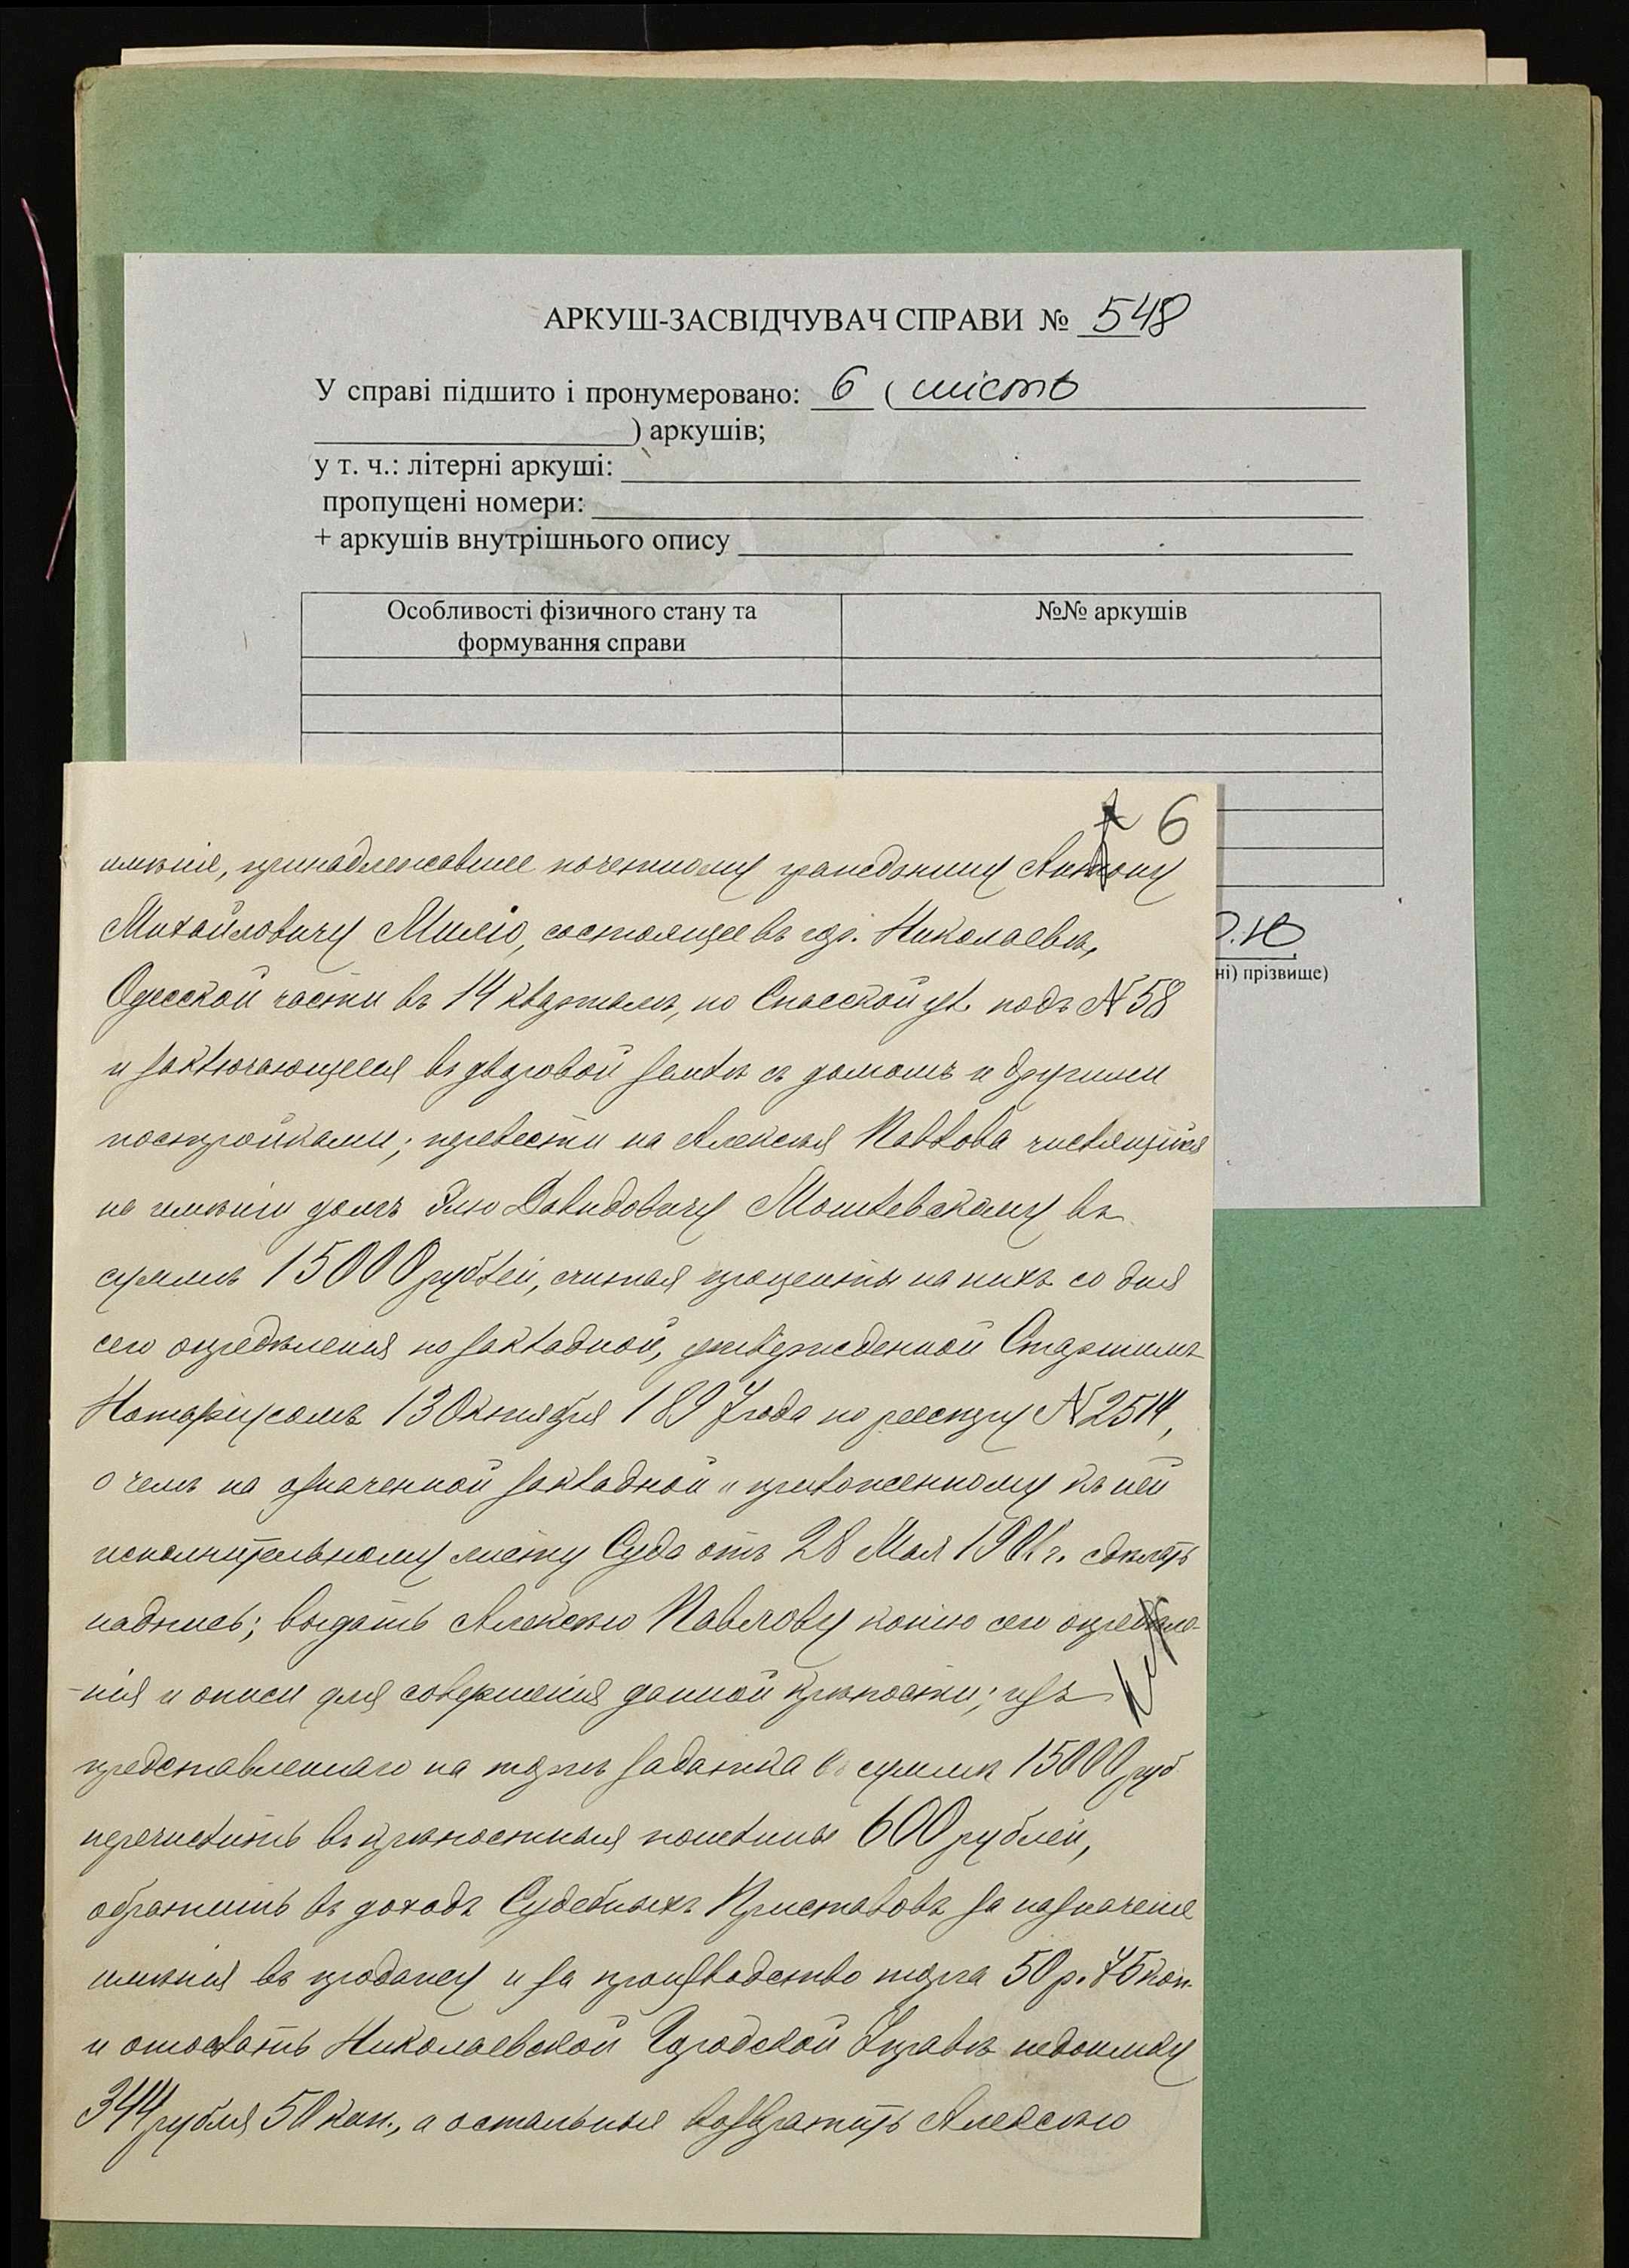 АРКУШ-ЗАСВІДЧУВАЧ СПРАВИ № 548
У справі підшито і пронумеровано: 6 ( шість
) аркушів;
у т. ч.: літерні аркуші:
пропущені номери:
+ аркушів внутрішнього опису
Особливості фізичного стану та
формування справи
№№ аркушів
ні) прізвище)
6
имѣніе, принадлежавшее почетному гражданину Антону
Михайловичу Милію, состоящее въ гор. Николаевѣ,
Одесской части въ 14 кварталѣ, по Спасской ул. подъ № 58
и заключающееся въ дворовой землѣ съ домомъ и другими
постройками; перевести на Алексѣя Павлова числящійся
на имѣніи долгъ Элю Давидовичу Мошлевскому въ
суммѣ 15000 рублей, считая проценты на нихъ со дня
сего опредѣленія по закладной, утвержденной Старшимъ
Нотаріусомъ 13 Октября 1897 года по реестру № 2514,
о чемъ на означенной закладной и приложенному къ ней
исполнительному листу Суда отъ 28 Мая г. сдѣлать
надпись; выдать Алексѣю Павлову копію сего опредѣле-
-нія и описи для совершенія данной крѣпости; изъ
представленнаго на торгъ задатка въ суммѣ 15000 руб
перечислить въ крѣпостныя пошлины 600 рублей,
обратить въ доходъ Судебныхъ Приставовъ за назначеніе
имѣнія въ продажу и за производство торга 50 р. 75 коп.
и отослать Николаевской Городской Управѣ недоимку
344 рубля 50 коп., а остальные возвратить Алексѣю